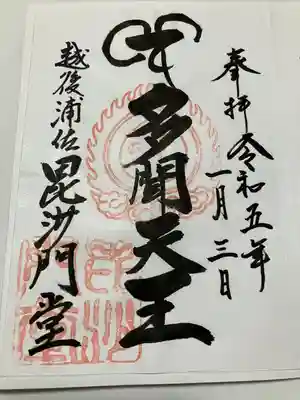 奉拝 令和五年
一月三日
多聞天王
越後浦佐 毘沙門堂